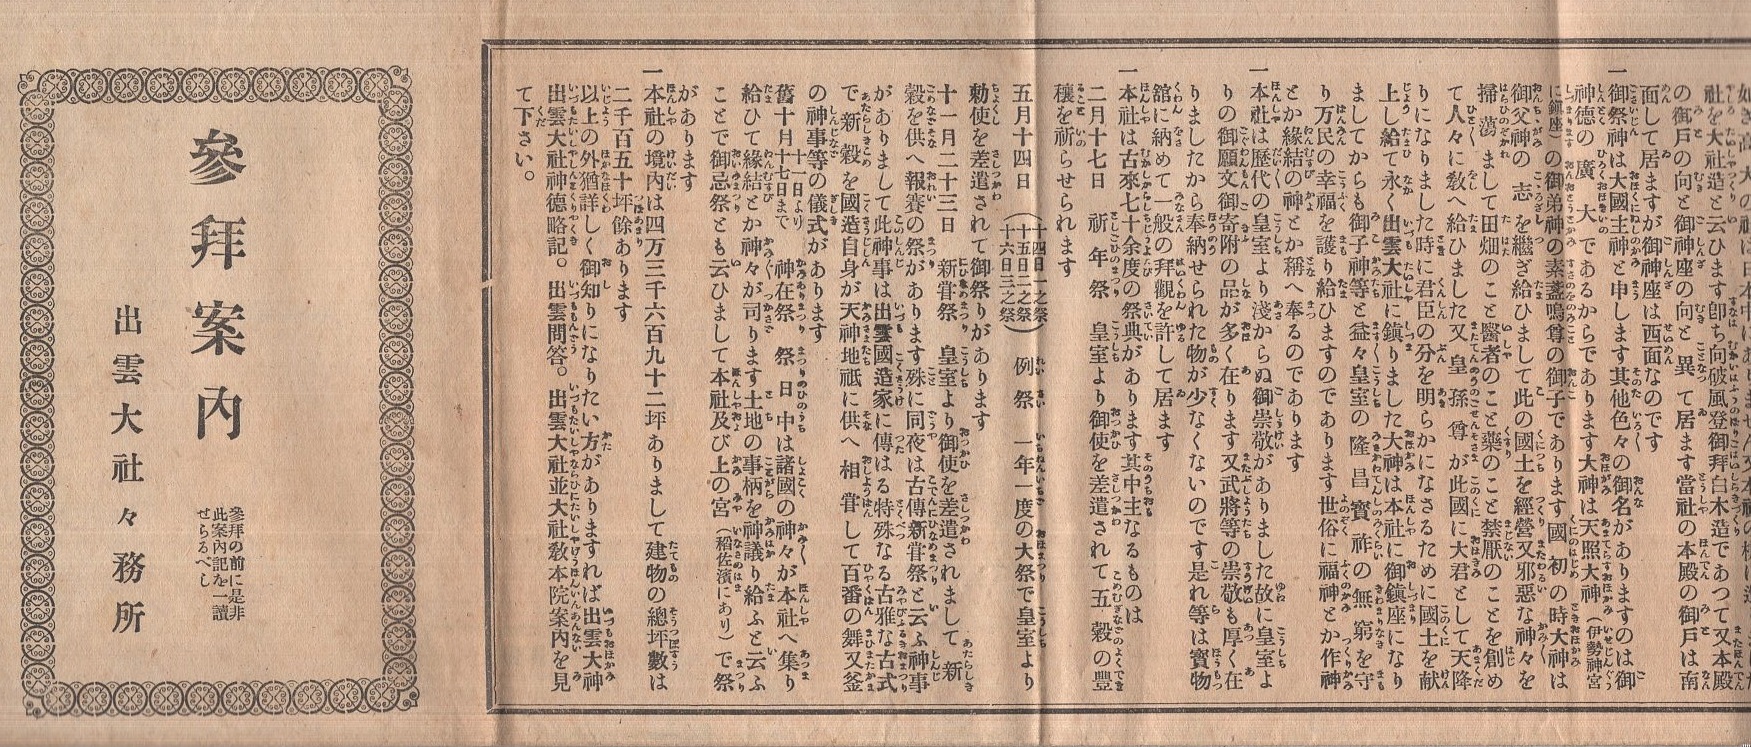 如き高大の社は日本中にありません又本社の様に造
社を大社造と云ひます卽ち向破風登御拜白木造であつて又本殿
の御戸の向と御神座の向と異て居ます當社の本殿の御戸は南
面して居ますが御神座は西面なのです
一御祭神は大國主神と申します其他色々の御名がありますのは御
神德の廣大であるからであります大神は天照大神(伊勢神宮
に鎭座)の御弟神の素盞嗚尊の御子であります國初の時大神は
御父神の志を繼ぎ給ひまして此の國土を經營又邪惡な神々を
掃蕩まして田畑のこと醫者のこと藥のこと禁厭のことを創め
て人々に敎へ給ひました又皇孫尊が此國に大君として天降
りになりました時に君臣の分を明らかになさるために國土を献
上し給て永く出雲大社に鎭りました大神は本社に御鎭座になり
ましてからも御子神等と益々皇室の隆昌寳祚の無窮を守
り万民の幸福を護り給ひますのであります世俗に福神とか作神
とか緣結の神とか稱へ奉るのであります
一本社は歷代の皇室より淺からぬ御崇敬がありました故に皇室よ
りの御願文御寄附の品が多く在ります又武將等の崇敬も厚く在
りましたから奉納せられた物が少なくないのです是れ等は寳物
舘に納めて一般の拜觀を許して居ます
一本社は古來七十余度の祭典があります其中主なるものは
二月十七日 祈年祭 皇室より御使を差遣されて五穀の豐
穰を祈らせられます
五月十四日(十四日一之祭 十五日二之祭 十六日三之祭) 例祭 一年一度の大祭で皇室より
勅使を差遣されて御祭りがあります
十一月二十三日 新甞祭 皇室より御使を差遣されまして新
穀を供へ報賽の祭があります殊に同夜は古傳新甞祭と云ふ神事
がありまして此神事は出雲國造家に傳はる特殊なる古雅な古式
で新穀を國造自身が天神地祗に供へ相甞して百番の舞又釜
の神事等の儀式があります
舊十月十一日より十七日まで 神在祭 祭日中は諸國の神々が本社へ集り
給ひて緣結とか神々が司ります土地の事柄を神議り給ふと云ふ
ことで御忌祭とも云ひまして本社及び上の宮(稻佐濱にあり)で祭
があります
一本社の境内は四万三千六百九十二坪ありまして建物の總坪數は
二千百五十坪餘あります
以上の外猶詳しく御知りになりたい方がありますれば出雲大神
出雲大社神德略記。出雲問答。出雲大社並大社敎本院案内を見
て下さい。
參拜案内
參拜の前に是非
此案内記を一讀
せらるべし
出雲大社々務所